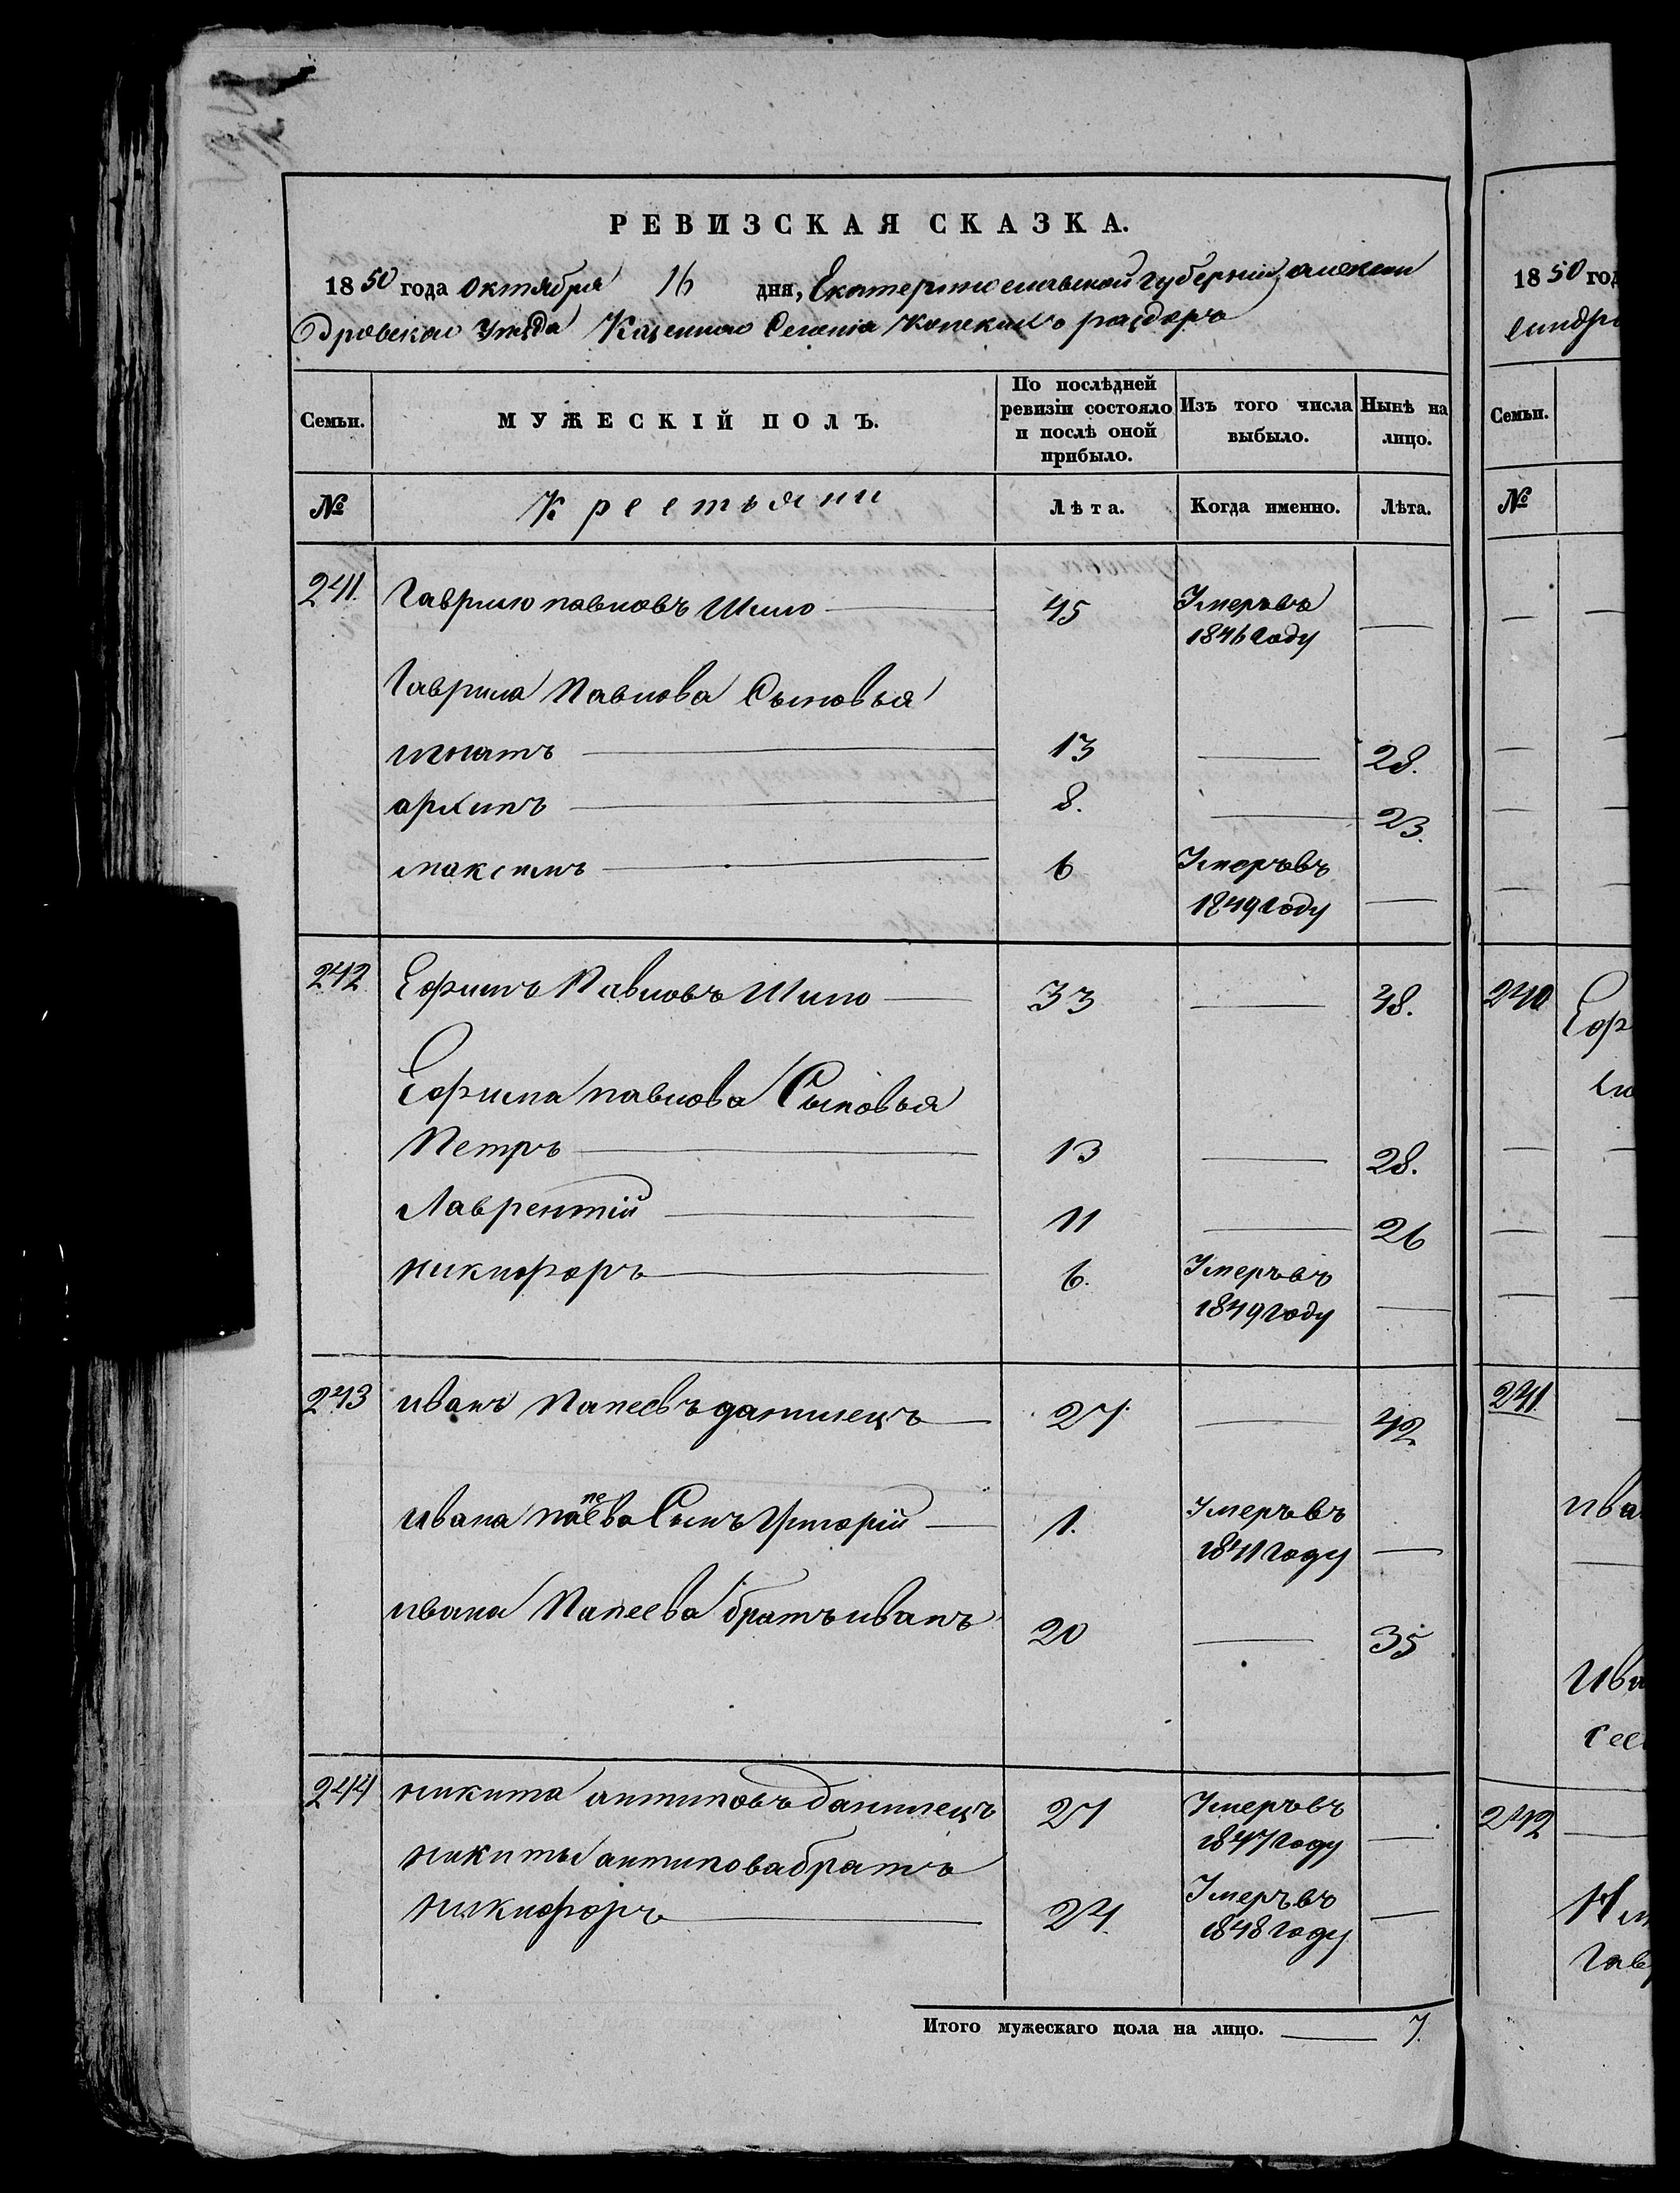 РЕВИЗСКАЯ СКАЗКА.
1850 года октября 16 дня, Екатеринославской губерніи, алексан
дровскаго уезда Казенного Селенія Копскихъ раздоръ
Семьи.
МУЖЕСКІЙ ПОЛЪ.
По послѣдней ревизіи состояло и послѣ оной прибыло.
Изъ того числа выбыло.
Нынѣ на лицо.
№ Крестьяни Лѣта. Когда именно. Лѣта.
241. Гаврило павловъ Шило 45 Умеръ въ
1846 году
Гаврила Павлова Сыновья
игнатъ 13 28.
архипъ 8. 23.
максимъ 6 Умеръ въ
1849 году
242 Ефимъ Павловъ Шило 33 48.
Ефима павлова Сыновья
Петръ 13 28.
Лаврентій 11 26
никифоръ 6. Умеръ въ
1849 году
243 иванъ Папеевъ данилецъ 27 42
ивана папеева Сынъ Григорій 1. Умеръ въ
1841 году
ивана Папеева братъ иванъ 20 35
244 никита антиповъ данилецъ 27 Умеръ въ
1847 году
никиты антипова братъ
никифоръ 24. Умеръ въ
1848 году
Итого мужескаго пола на лицо. 7.
1850 год
Семьи.
№
240
Еф
241
ива
Ива
242
Гав